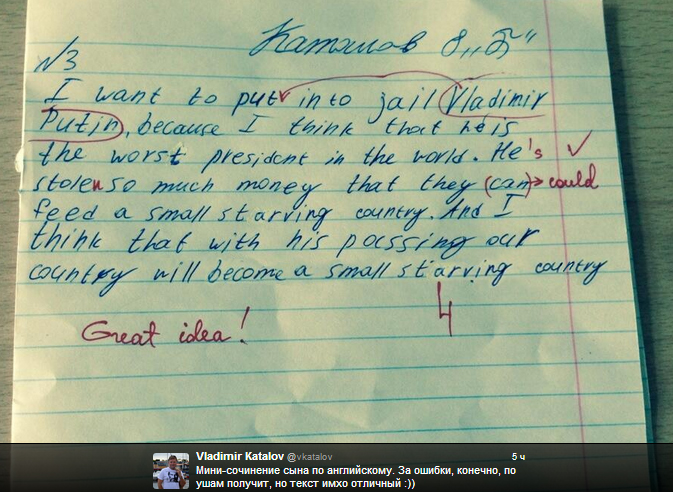 Каталов 8 „Б"
№3
I want to put into jail Vladimir
Putin, because I think that he is
the worst president in the world. He's ✓
stolen so much money that they (can) → could
feed a small starving country. And I
think that with his passing our
country will become a small starving country
4
Great idea!
Vladimir Katalov @vkatalov 5 ч
Мини-сочинение сына по английскому. За ошибки, конечно, по
ушам получит, но текст имхо отличный :))